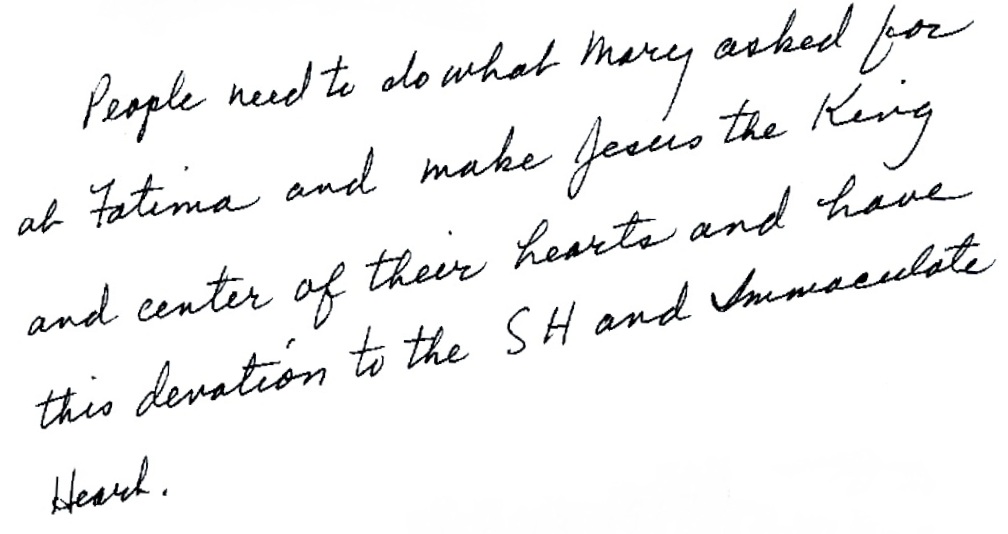 People need to do what Mary asked for
at Fatima and make Jesus the King
and center of their hearts and have
this devotion to the SH and Immaculate
Heart.